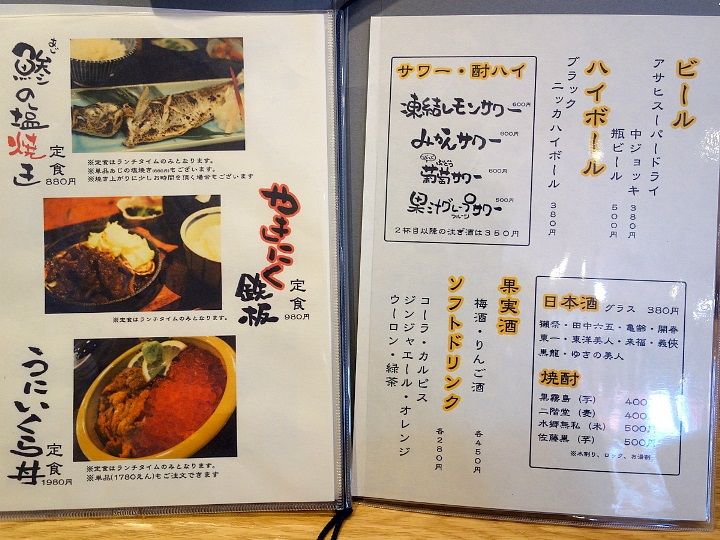 あじ
鯵の塩焼き
定食
880円
※定食はランチタイムのみとなります。
※単品あじの塩焼き(680円)もございます。
※焼き上がりに少しお時間を頂く場合もございます
やきにく
鉄板
定食
980円
※定食はランチタイムのみとなります。
うにいくら丼
定食
1980円
※定食はランチタイムのみとなります。
※単品(1780えん)もご注文できます
ビール
アサヒスーパードライ
中ジョッキ 380円
瓶ビール 500円
ハイボール
ブラック
ニッカハイボール 380円
サワー・酎ハイ
凍結レモンサワー 600円
みかんサワー 600円
葡萄サワー 600円
果汁グレープサワー 500円
2杯目以降の注ぎ酒は350円
果実酒
梅酒・りんご酒
各450円
ソフトドリンク
コーラ・カルピス
ジンジャエール・オレンジ
ウーロン・緑茶
各280円
日本酒 グラス 380円
獺祭・田中六五・亀齢・開春
東一・東洋美人・来福・義侠
黒龍・ゆきの美人
焼酎
黒霧島 (芋) 400
二階堂 (麦) 400円
水郷無私 (米) 500円
佐藤黒 (芋) 500円
※水割り、ロック、お湯割